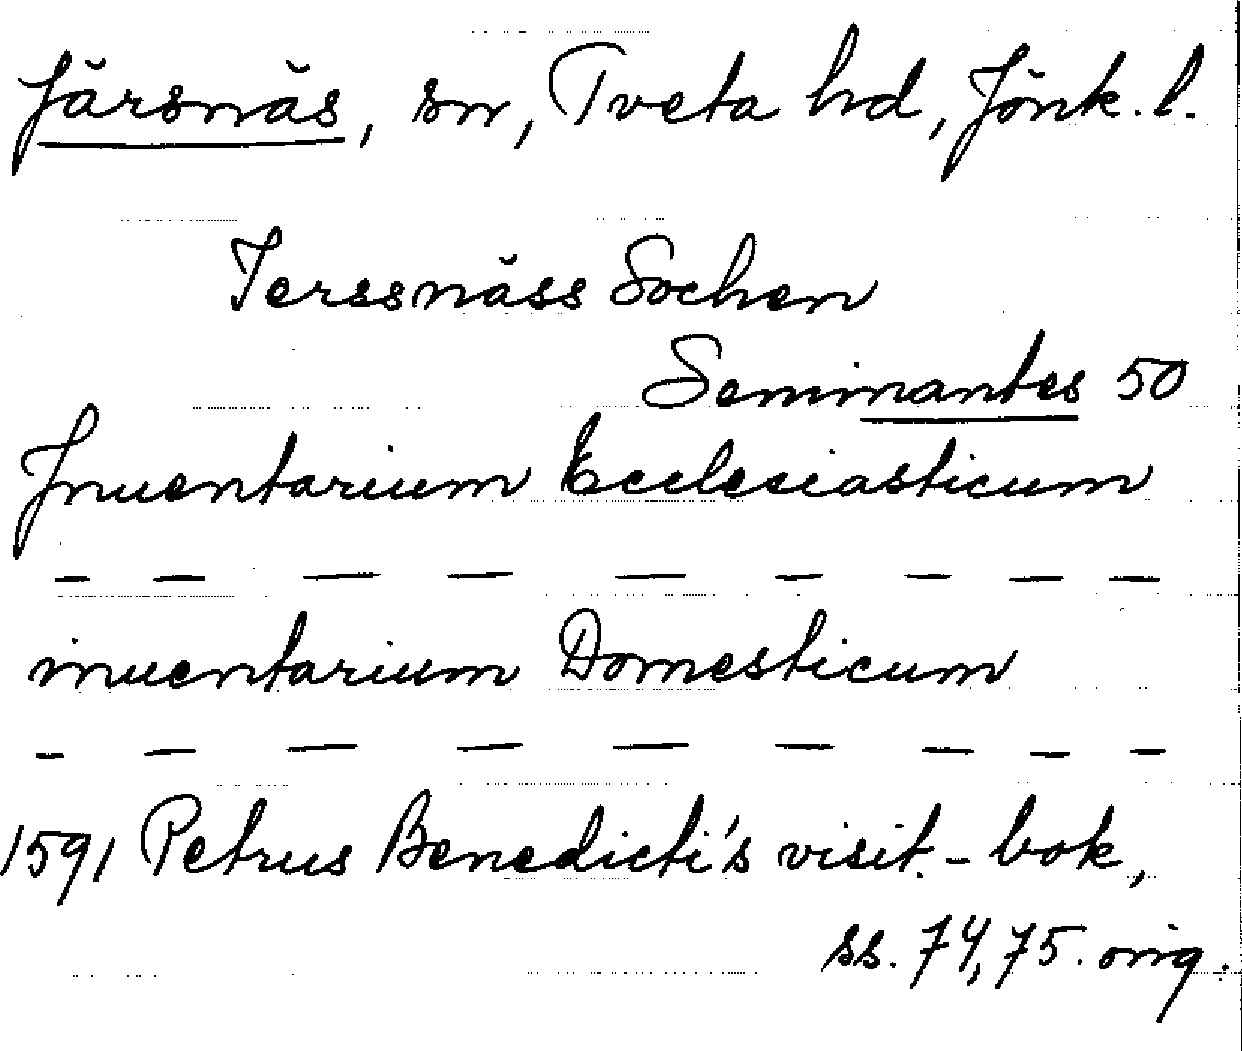 Järsnäs, sn, Tveta hd, Jönk. l.
Jerssnäss Sochen
Seminantes 50
Jnuentarium Ecclesiasticum
— — — — — — — — —
inuentarium Domesticum
— — — — — — — — —
1591 Petrus Benedicti's visit.-bok,
ss. 74, 75. orig.